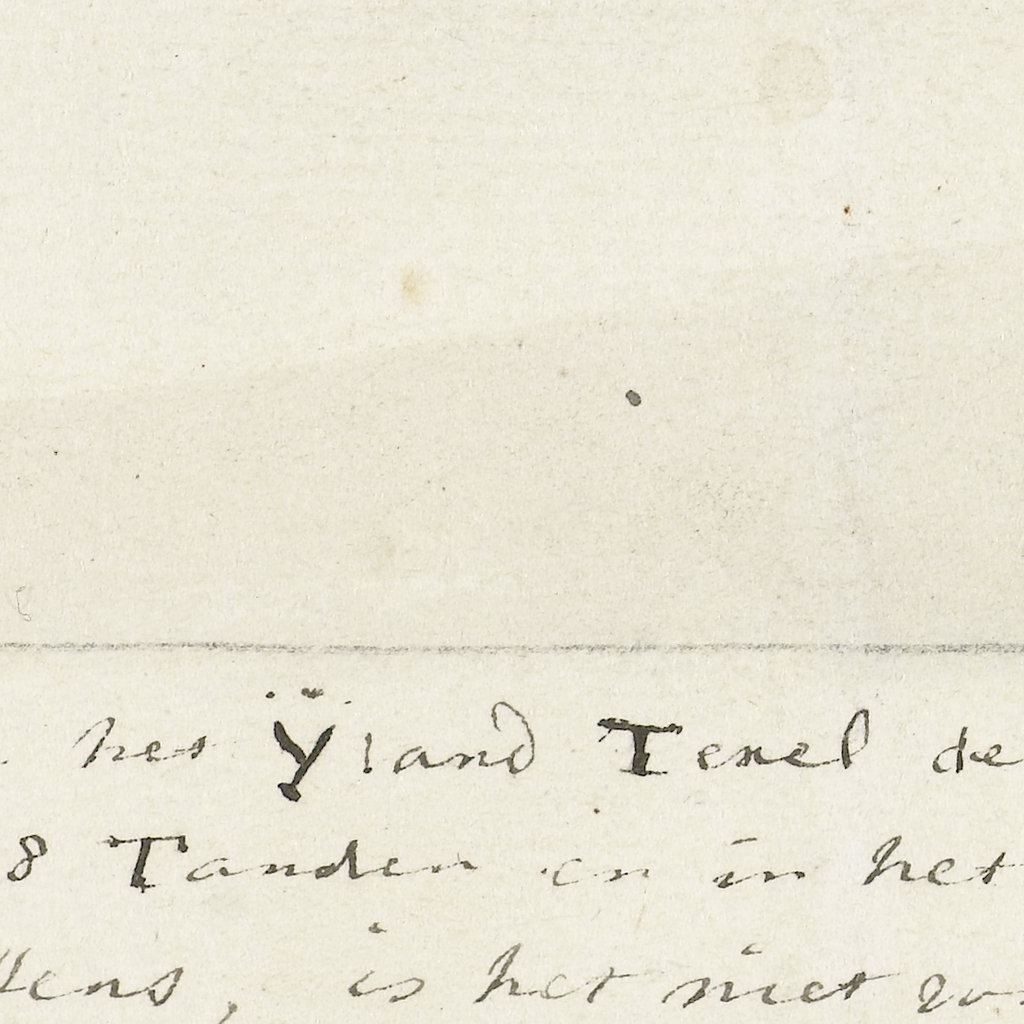 het Ÿland Texel de
8 Tanden en in het
is het niet